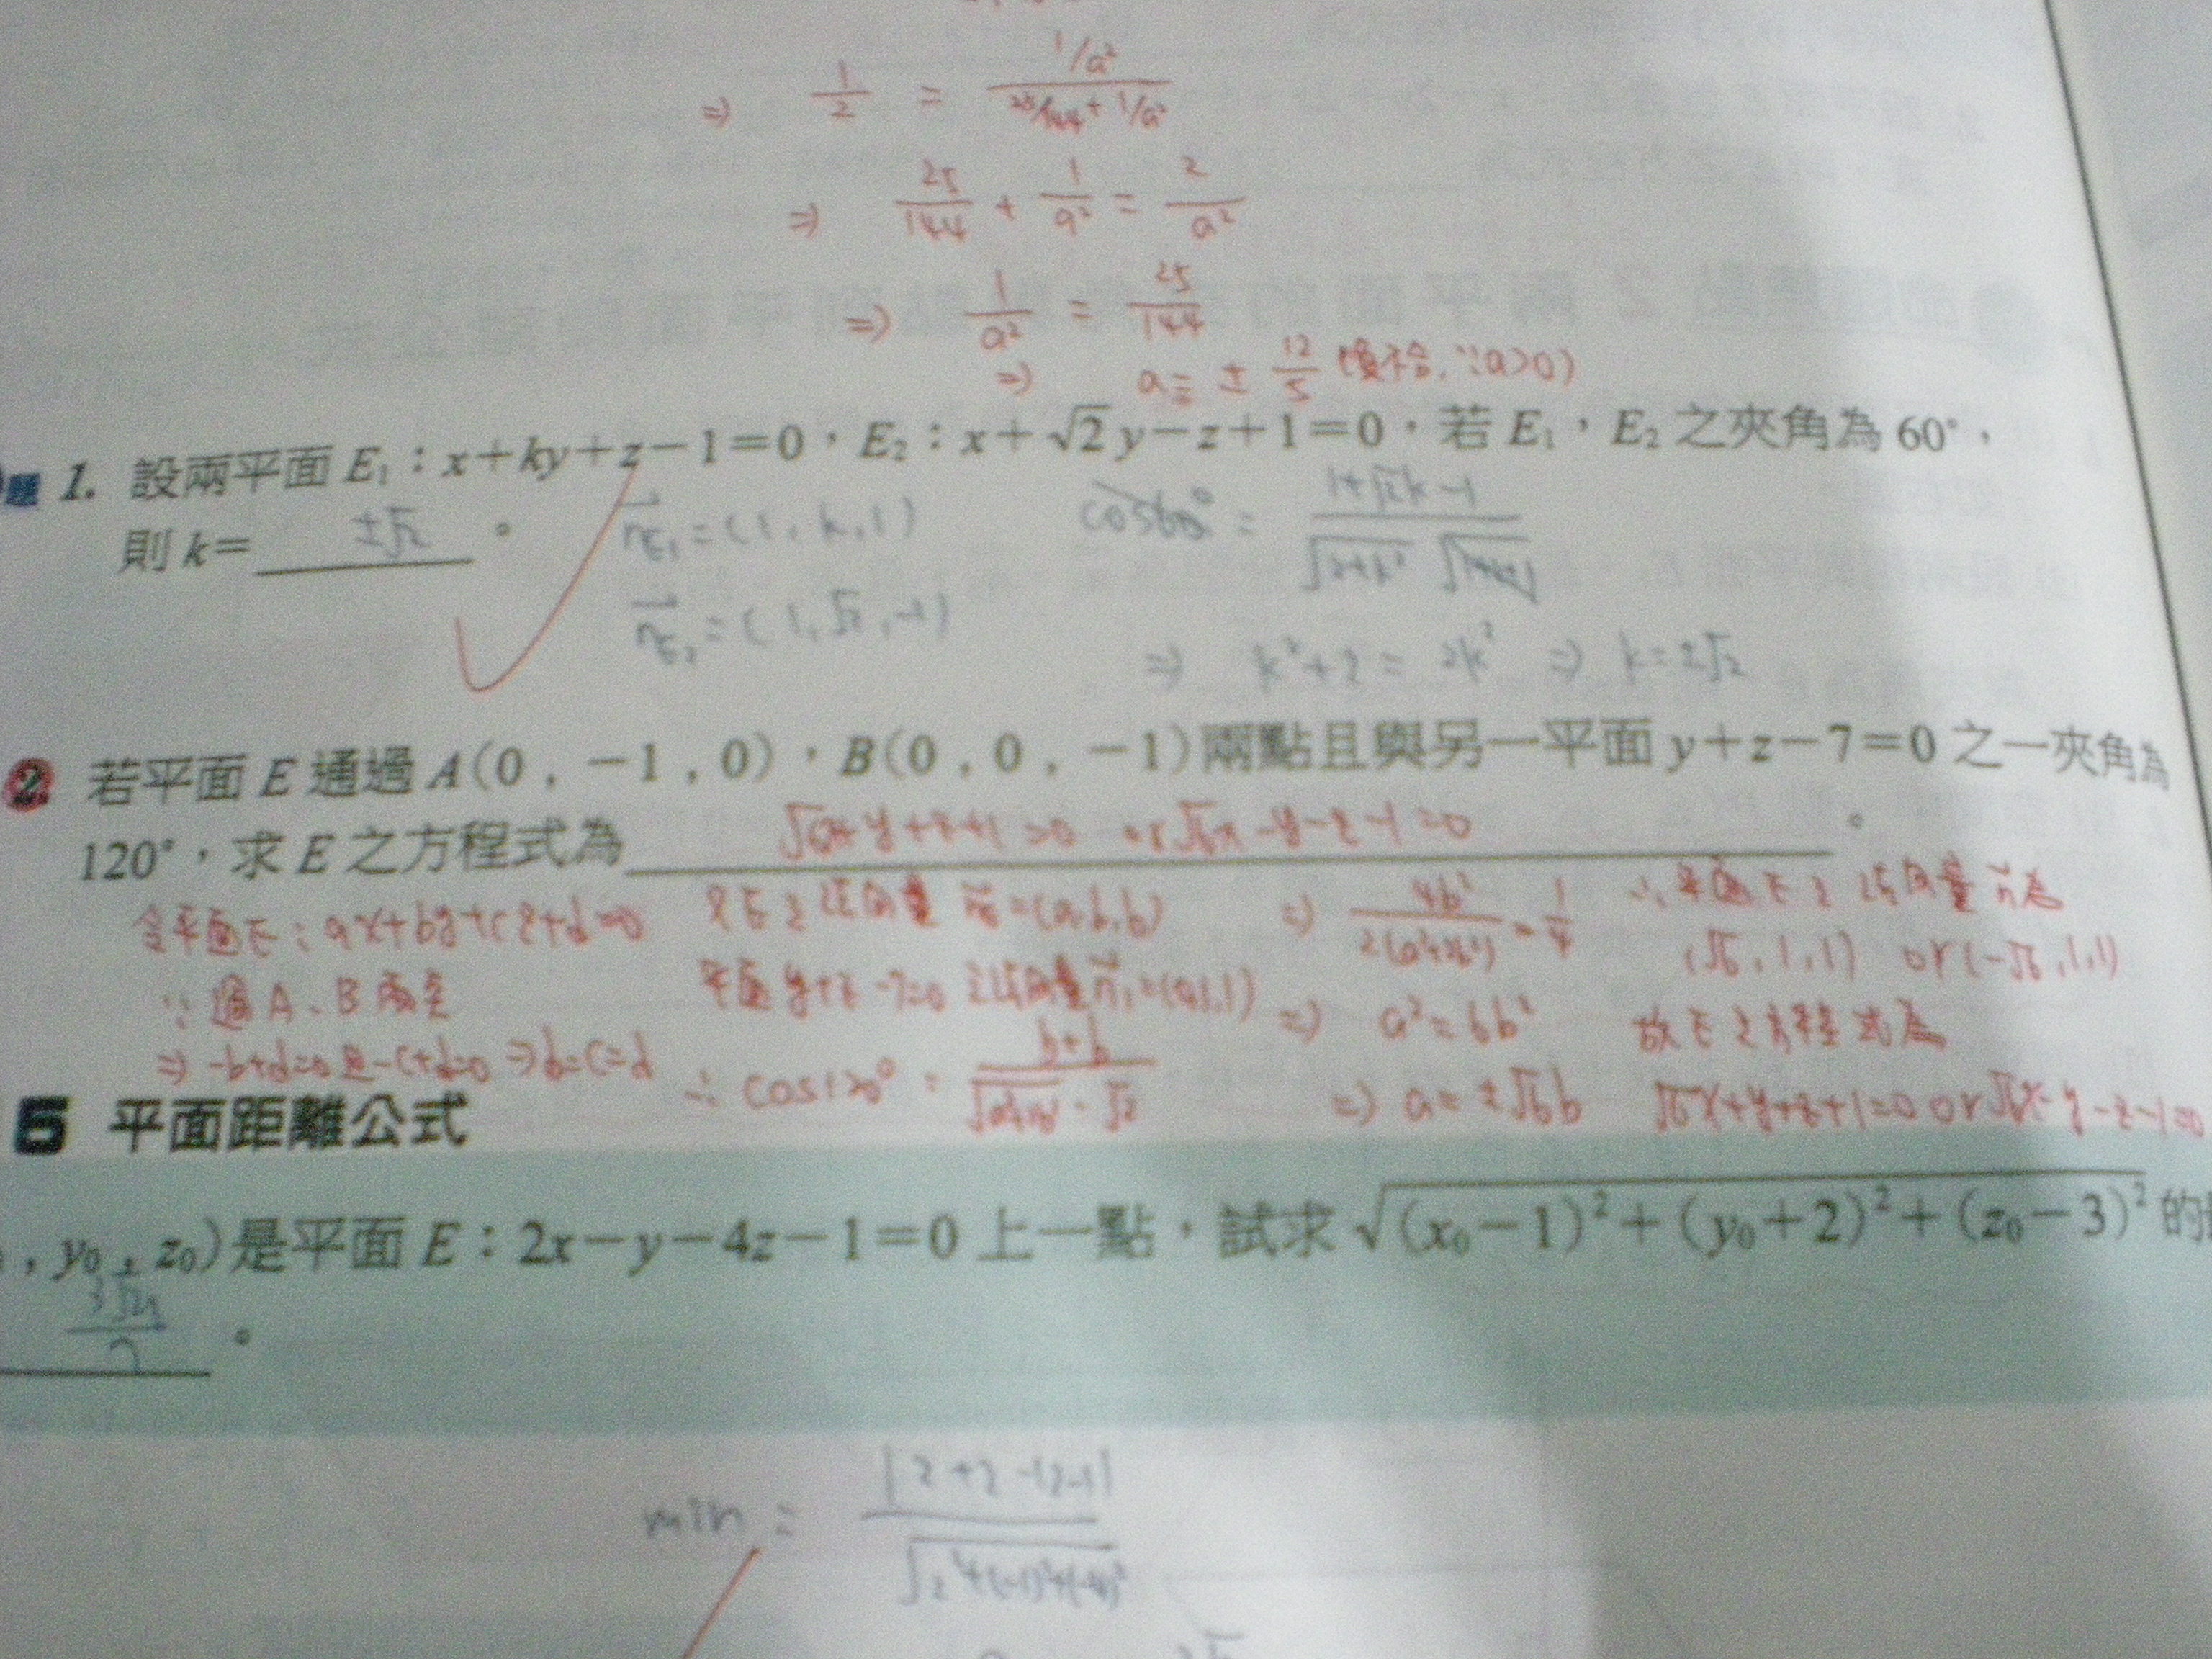 ⇒ 1/2 = (1/a²)/(25/144 + 1/a²)
⇒ 25/144 + 1/a² = 2/a²
⇒ 1/a² = 25/144
⇒ a = ± 12/5 (負不合, ∵a>0)
題 1. 設兩平面 E₁：x+ky+z−1=0，E₂：x+√2y−z+1=0，若 E₁，E₂ 之夾角為 60°，
則 k= ±√2 。
nE₁ = (1, k, 1)
nE₂ = (1, √2, -1)
cos60° = (1+√2k-1)/(√(2+k²)
⇒ k²+2 = 2k² ⇒ k=±√2
2. 若平面 E 通過 A(0，−1，0)，B(0，0，−1)兩點且與另一平面 y+z−7=0 之一夾角為
120°，求 E 之方程式為 √6x+y+z+1=0 or √6x-y-z-1=0 。
令平面E：ax+by+cz+d=0
∵ 過A、B兩點
⇒ -b+d=0且-c+d=0 ⇒b=c=d
又E之法向量 nE=(a,b,b)
平面 y+z-7=0 之法向量n₁=(0,1,1)
∴ cos120° = (b+b)/(√(a²+2b²)·√2)
⇒ 4b²/(2(a²+2b²)) = 1/4
⇒ a²=6b²
⇒ a=±√6b
∴平面E之法向量n為
(√6,1,1) or (-√6,1,1)
故E之方程式為
√6x+y+z+1=0 or √6x-y-z-1=0
5 平面距離公式
，y₀，z₀)是平面 E：2x−y−4z−1=0 上一點，試求√((x₀−1)²+(y₀+2)²+(z₀−3)²) 的
。
min = |2+2-12-1|/√(2²+(-1)²+(-4)²)